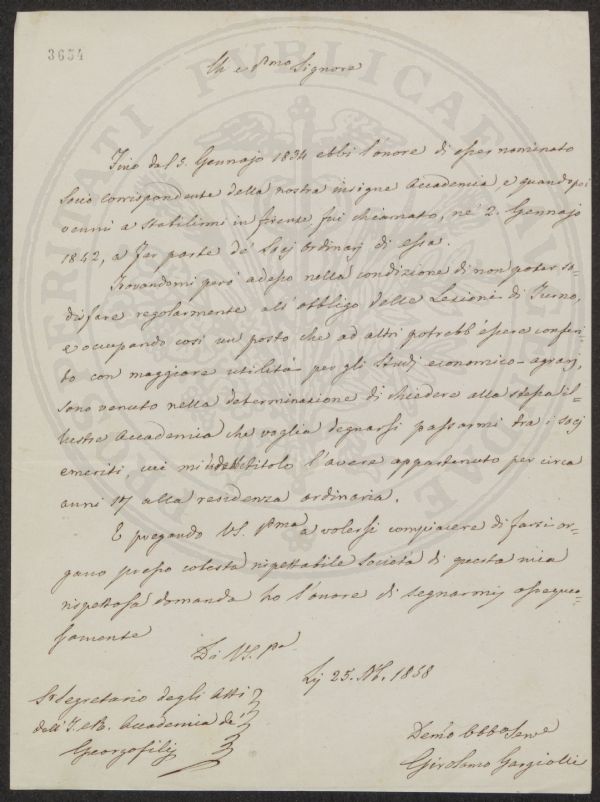 3654
PROSPERITATI PUBLICAE AUGENDAE
Signore
Fino dal 3. Gennajo 1834 ebbi l'onore di esser nominato
Socio corrispondente della nostra insigne Accademia, e quando poi
venni a stabilirmi in Firenze fui chiamato, ne' 2. Gennajo
1842, a far parte de' Socj ordinarj di essa.
Trovandomi però adesso nella condizione di non poter so-
disfare regolarmente all'obbligo delle Lezione di Turno,
e occupando così un posto che ad altri potrebb'essere conferi-
to con maggiore utilità per gli studj economico-agrarj,
sono venuto nella determinazione di chiedere alla stessa il-
lustre Accademia che voglia degnarsi passarmi tra i socj
emeriti cui mi titolo l'avere appartenuto per circa
anni 17 alla residenza ordinaria.
E pregando VS. Pma a volersi compiacere di farsi or-
gano presso cotesta rispettabile società di questa mia
rispettosa domanda ho l'onore di segnarmi ossequio-
samente
Di VS. Pma
Lì 25. 1858
Sr Segretario degli Atti
dell'I. e R. Accademia de'
Georgofilj
Girolamo Gargiolli